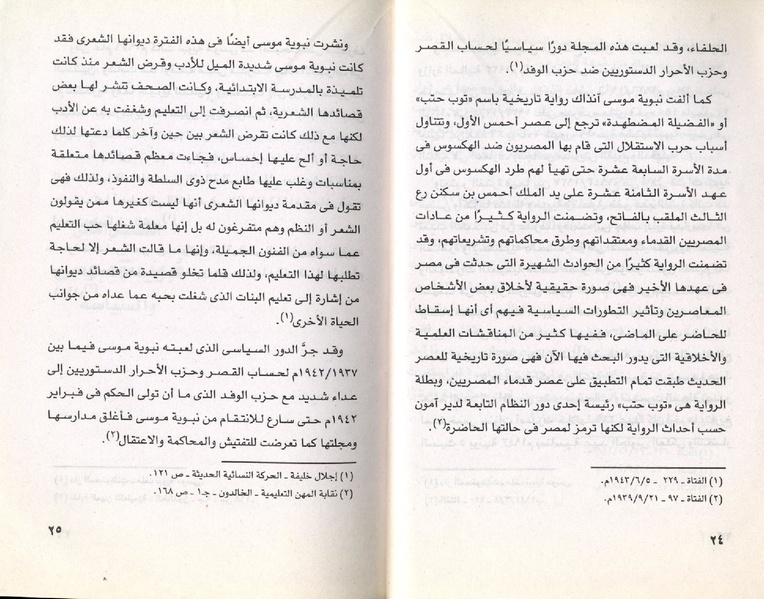 الحلفاء، وقد لعبت هذه المجلة دورًا سياسيًا لحساب القصر
وحزب الأحرار الدستوريين ضد حزب الوفد(١).
كما ألفت نبوية موسى آنذاك رواية تاريخية باسم «توب حتب»
أو «الفضيلة المضطهدة» ترجع إلى عصر أحمس الأول، وتتناول
أسباب حرب الاستقلال التى قام بها المصريون ضد الهكسوس فى
مدة الأسرة السابعة عشرة حتى تهيأ لهم طرد الهكسوس فى أول
عهد الأسرة الثامنة عشرة على يد الملك أحمس بن سكنن رع
الثالث الملقب بالفاتح، وتضمنت الرواية كثيرًا من عادات
المصريين القدماء ومعتقداتهم وطرق محاكماتهم وتشريعاتهم، وقد
تضمنت الرواية كثيرًا من الحوادث الشهيرة التى حدثت فى مصر
فى عهدها الأخير فهى صورة حقيقية لأخلاق بعض الأشخاص
المعاصرين وتأثير التطورات السياسية فيهم أى أنها إسقاط
للحاضر على الماضى، ففيها كثير من المناقشات العلمية
والأخلاقية التى يدور البحث فيها الآن فهى صورة تاريخية للعصر
الحديث طبقت تمام التطبيق على عصر قدماء المصريين، وبطلة
الرواية هى «توب حتب» رئيسة إحدى دور النظام التابعة لدير آمون
حسب أحداث الرواية لكنها ترمز لمصر فى حالتها الحاضرة(٢).
(١) الفتاة ـ ٢٢٩ ـ ١٩٤٣/٦/٥م.
(٢) الفتاة ـ ٩٧ ـ ١٩٣٩/٩/٢١م.
٢٤
ونشرت نبوية موسى أيضًا فى هذه الفترة ديوانها الشعرى فقد
كانت نبوية موسى شديدة الميل للأدب وقرض الشعر منذ كانت
تلميذة بالمدرسة الابتدائية، وكانت الصحف تنشر لها بعض
قصائدها الشعرية، ثم انصرفت إلى التعليم وشغفت به عن الأدب
لكنها مع ذلك كانت تقرض الشعر بين حين وآخر كلما دعتها لذلك
حاجة أو ألح عليها إحساس، فجاءت معظم قصائدها متعلقة
بمناسبات وغلب عليها طابع مدح ذوى السلطة والنفوذ، ولذلك فهى
تقول فى مقدمة ديوانها الشعرى أنها ليست كغيرها ممن يقولون
الشعر أو النظم وهم متفرغون له بل إنها معلمة شغلها حب التعليم
عما سواه من الفنون الجميلة، وإنها ما قالت الشعر إلا لحاجة
تطلبها لهذا التعليم، ولذلك قلما تخلو قصيدة من قصائد ديوانها
من إشارة إلى تعليم البنات الذى شغلت بحبه عما عداه من جوانب
الحياة الأخرى(١).
وقد جرَّ الدور السياسى الذى لعبته نبوية موسى فيما بين
١٩٤٢/١٩٣٧م لحساب القصر وحزب الأحرار الدستوريين إلى
عداء شديد مع حزب الوفد الذى ما أن تولى الحكم فى فبراير
١٩٤٢م حتى سارع للانتقام من نبوية موسى فأغلق مدارسها
ومجلتها كما تعرضت للتفتيش والمحاكمة والاعتقال(٢).
(١) إجلال خليفة ـ الحركة النسائية الحديثة ـ ص ١٢١.
(٢) نقابة المهن التعليمية ـ الخالدون ـ جـ١ ـ ص ١٦٨.
٢٥